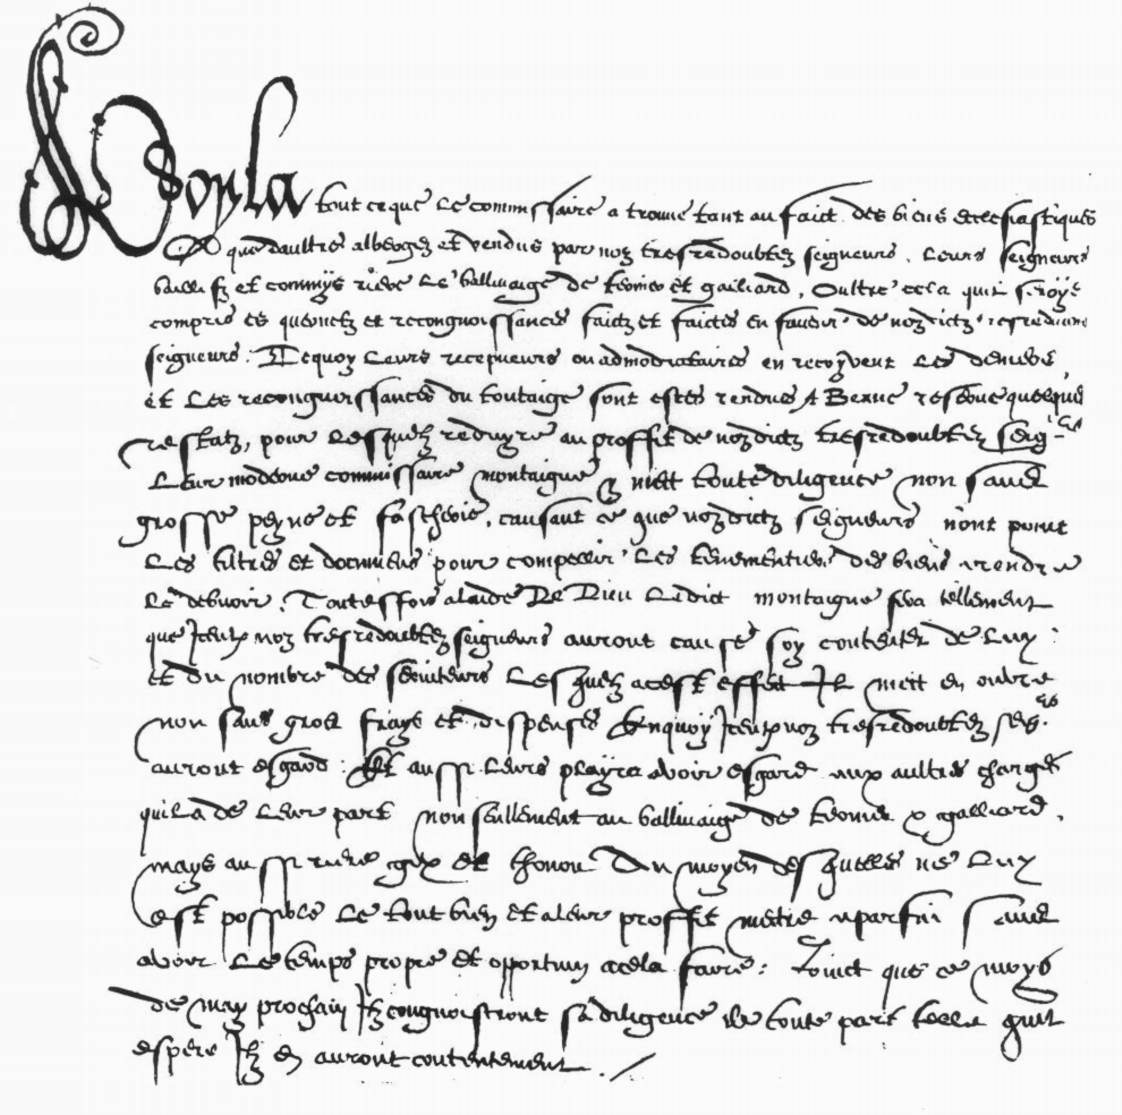 Voyla tout ce que le commissaire a trouve tant au faict des biens ecclesiastiques
que daultres albergez et vendus par noz tresredoubtez seigneurs. Leurs seigneurs
baillifz et commys riere le balliuaige de ternier et gailiard, Oultre cela quil seroye
compris es quernetz et recongnoissances faictz et faictes en faueur de nozdictz tresredoubtez
seigneurs. Dequoy leurs recepueurs ou admodiataires en recoyuent les deniers
et les recongnoissances du toutaige sont estes rendues A Berne reserue quelque
restatz, pour lesquelz reduyre au proffit de nozdictz tresredoubtez seigrs
Leur moderne commissaire montaigne mett toute diligence non sans
grosse peyne et fascherie, causant ce que nozdictz seigneurs nont point
Les tiltres et documens pour compellir les tenementiers des biens rendre
Le debuoir. Toutesfois alaide De Dieu Ledict montaigne fera tellement
que Iceulx noz tresredoubtez seigneurs auront cause soy contenter de luy
et du nombre des seruiteurs Lesquelz acest effect Il mett en oeuure
non sans gros frays et despenses Enquoy Iceulx noz tresredoubtez seigrs
auront esgard. Et aussi leurs playra avoir esgard aux aultres charges
quil a de leur part non seullement au balliuaige de ternier & galliard,
mays aussi riere gex et thonon Du moyen desquelles ne luy
est possible le tout bien et aleur proffit mettre aparfin sans
avoir le temps propre et opportun acela faire: touct que ce moys
de may prochain Ilz congnoistront sa diligence de toute part telle quil
espere Ilz en auront contentement.